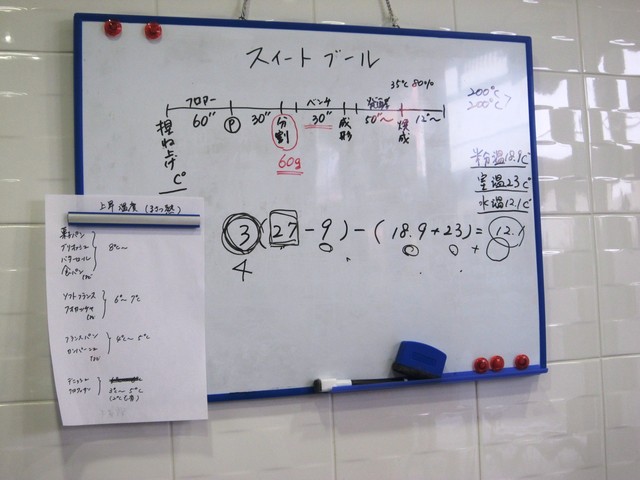 スイートブール
35℃ 80%
200℃
200℃?
フロアー
ベンチ
発酵
60″
P
30″
分割
30″
成形
50″~
焼成
12″~
捏ね上げ
C°
60g
粉温18.9C°
室温23C°
水温12.1C°
3(27-9)-(18.9+23)=12.1
+
4
上昇温度(3つの怒)
菓子パン
ブリオッシュ
バターロール
食パン
8℃~
ソフトフランス
6°~7℃
フランスパン
4℃~5℃
デニッシュ
3℃~5℃